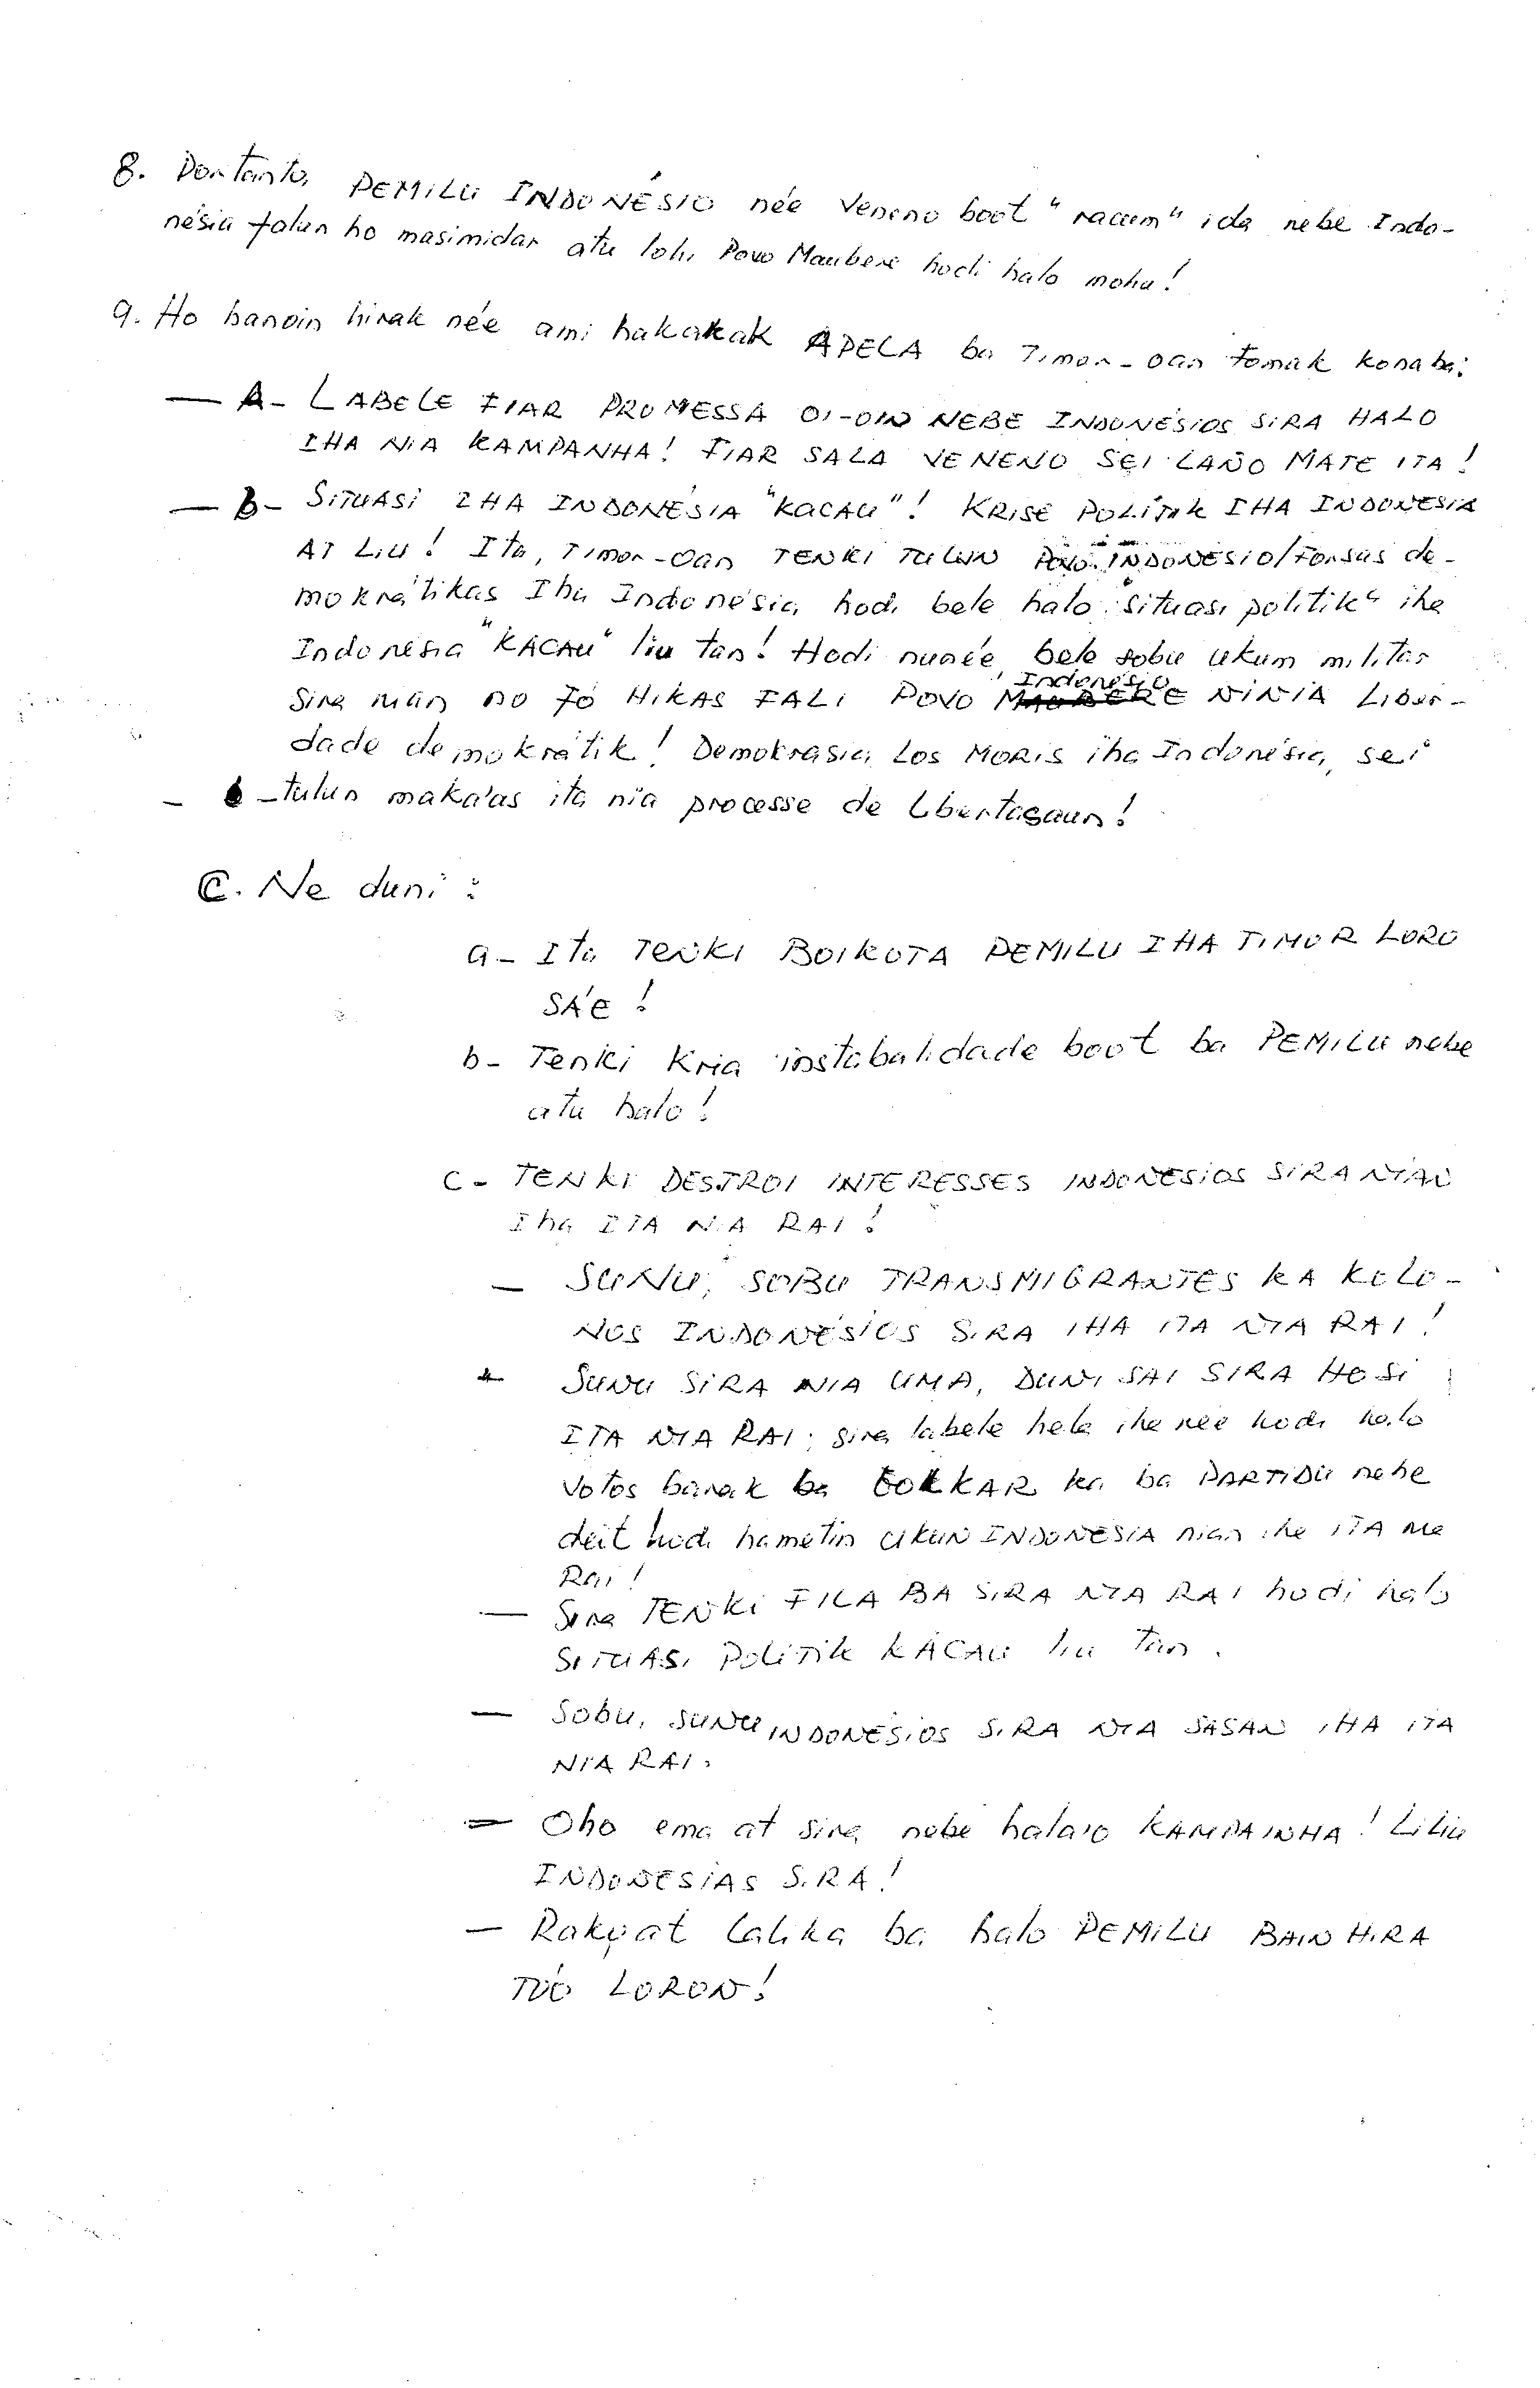 8. Portanto, PEMILU INDONÉSIO née veneno boot "racum" ida nebe Indo-
nésia falun ho masimidar atu lohi Povo Maubere hodi halo mohu!
9. Ho hanoin hirak née ami hakakak APELA ba Timor-oan tomak kona ba:
— A- LABELE FIAR PROMESSA OI-OIN NEBE INDONÉSIOS SIRA HALO
IHA NIA KAMPANHA! FIAR SALA VENENO SEI LAÑO MATE ITA!
— B- SITUASI IHA INDONÉSIA "KACAU"! KRISE POLÍTIK IHA INDONESIA
AT LIU! Ita, TIMOR-Oan TENKI TULUN POVO INDONÉSIO/FORSAS de-
mokrátikas Iha Indonésia, hodi bele halo "situasi politik" iha
Indonésia "KACAU" liu tan! Hodi nunée bele sobu ukum militar
Sira nian no FÓ HIKAS FALI POVO Indonésio NINIA Liber-
dade demokrátik! Demokrasia LOS MORIS iha Indonésia, sei
- tulun maka'as ita nia processe de Libertasaun!
C. Ne duni:
a- Ita TENKI BOIKOTA PEMILU IHA TIMOR LORO
SÁE!
b- Tenki Kria instabalidade boot ba PEMILU nebe
atu halo!
c- TENKI DESTROI INTERESSES INDONESIOS SIRA NIAN
Iha ITA NIA RAI!
— SUNU, SOBU TRANSMIGRANTES KA KOLO-
NOS INDONÉSIOS SIRA IHA ITA NIA RAI!
- SUNU SIRA NIA UMA, DUNI SAI SIRA HOSI
ITA NIA RAI; sira labele hela iha nee hodi halo
votos barak ba GOLKAR ka ba PARTIDU nebe
deit hodi hametin UKUN INDONESIA nian iha ITA nia
Rai!
— Sira TENKI FILA BA SIRA NIA RAI hodi halo
SITUASI POLITIK KACAU liu tan.
— Sobu, SUNU INDONÉSIOS SIRA NIA SASAN IHA ITA
NIA RAI.
— Oho ema at sira nebe hala'o KAMPAINHA! LILIU
INDONESIAS SIRA!
— Rakyat Lalika ba halo PEMILU BAINHIRA
TÓO LORON!